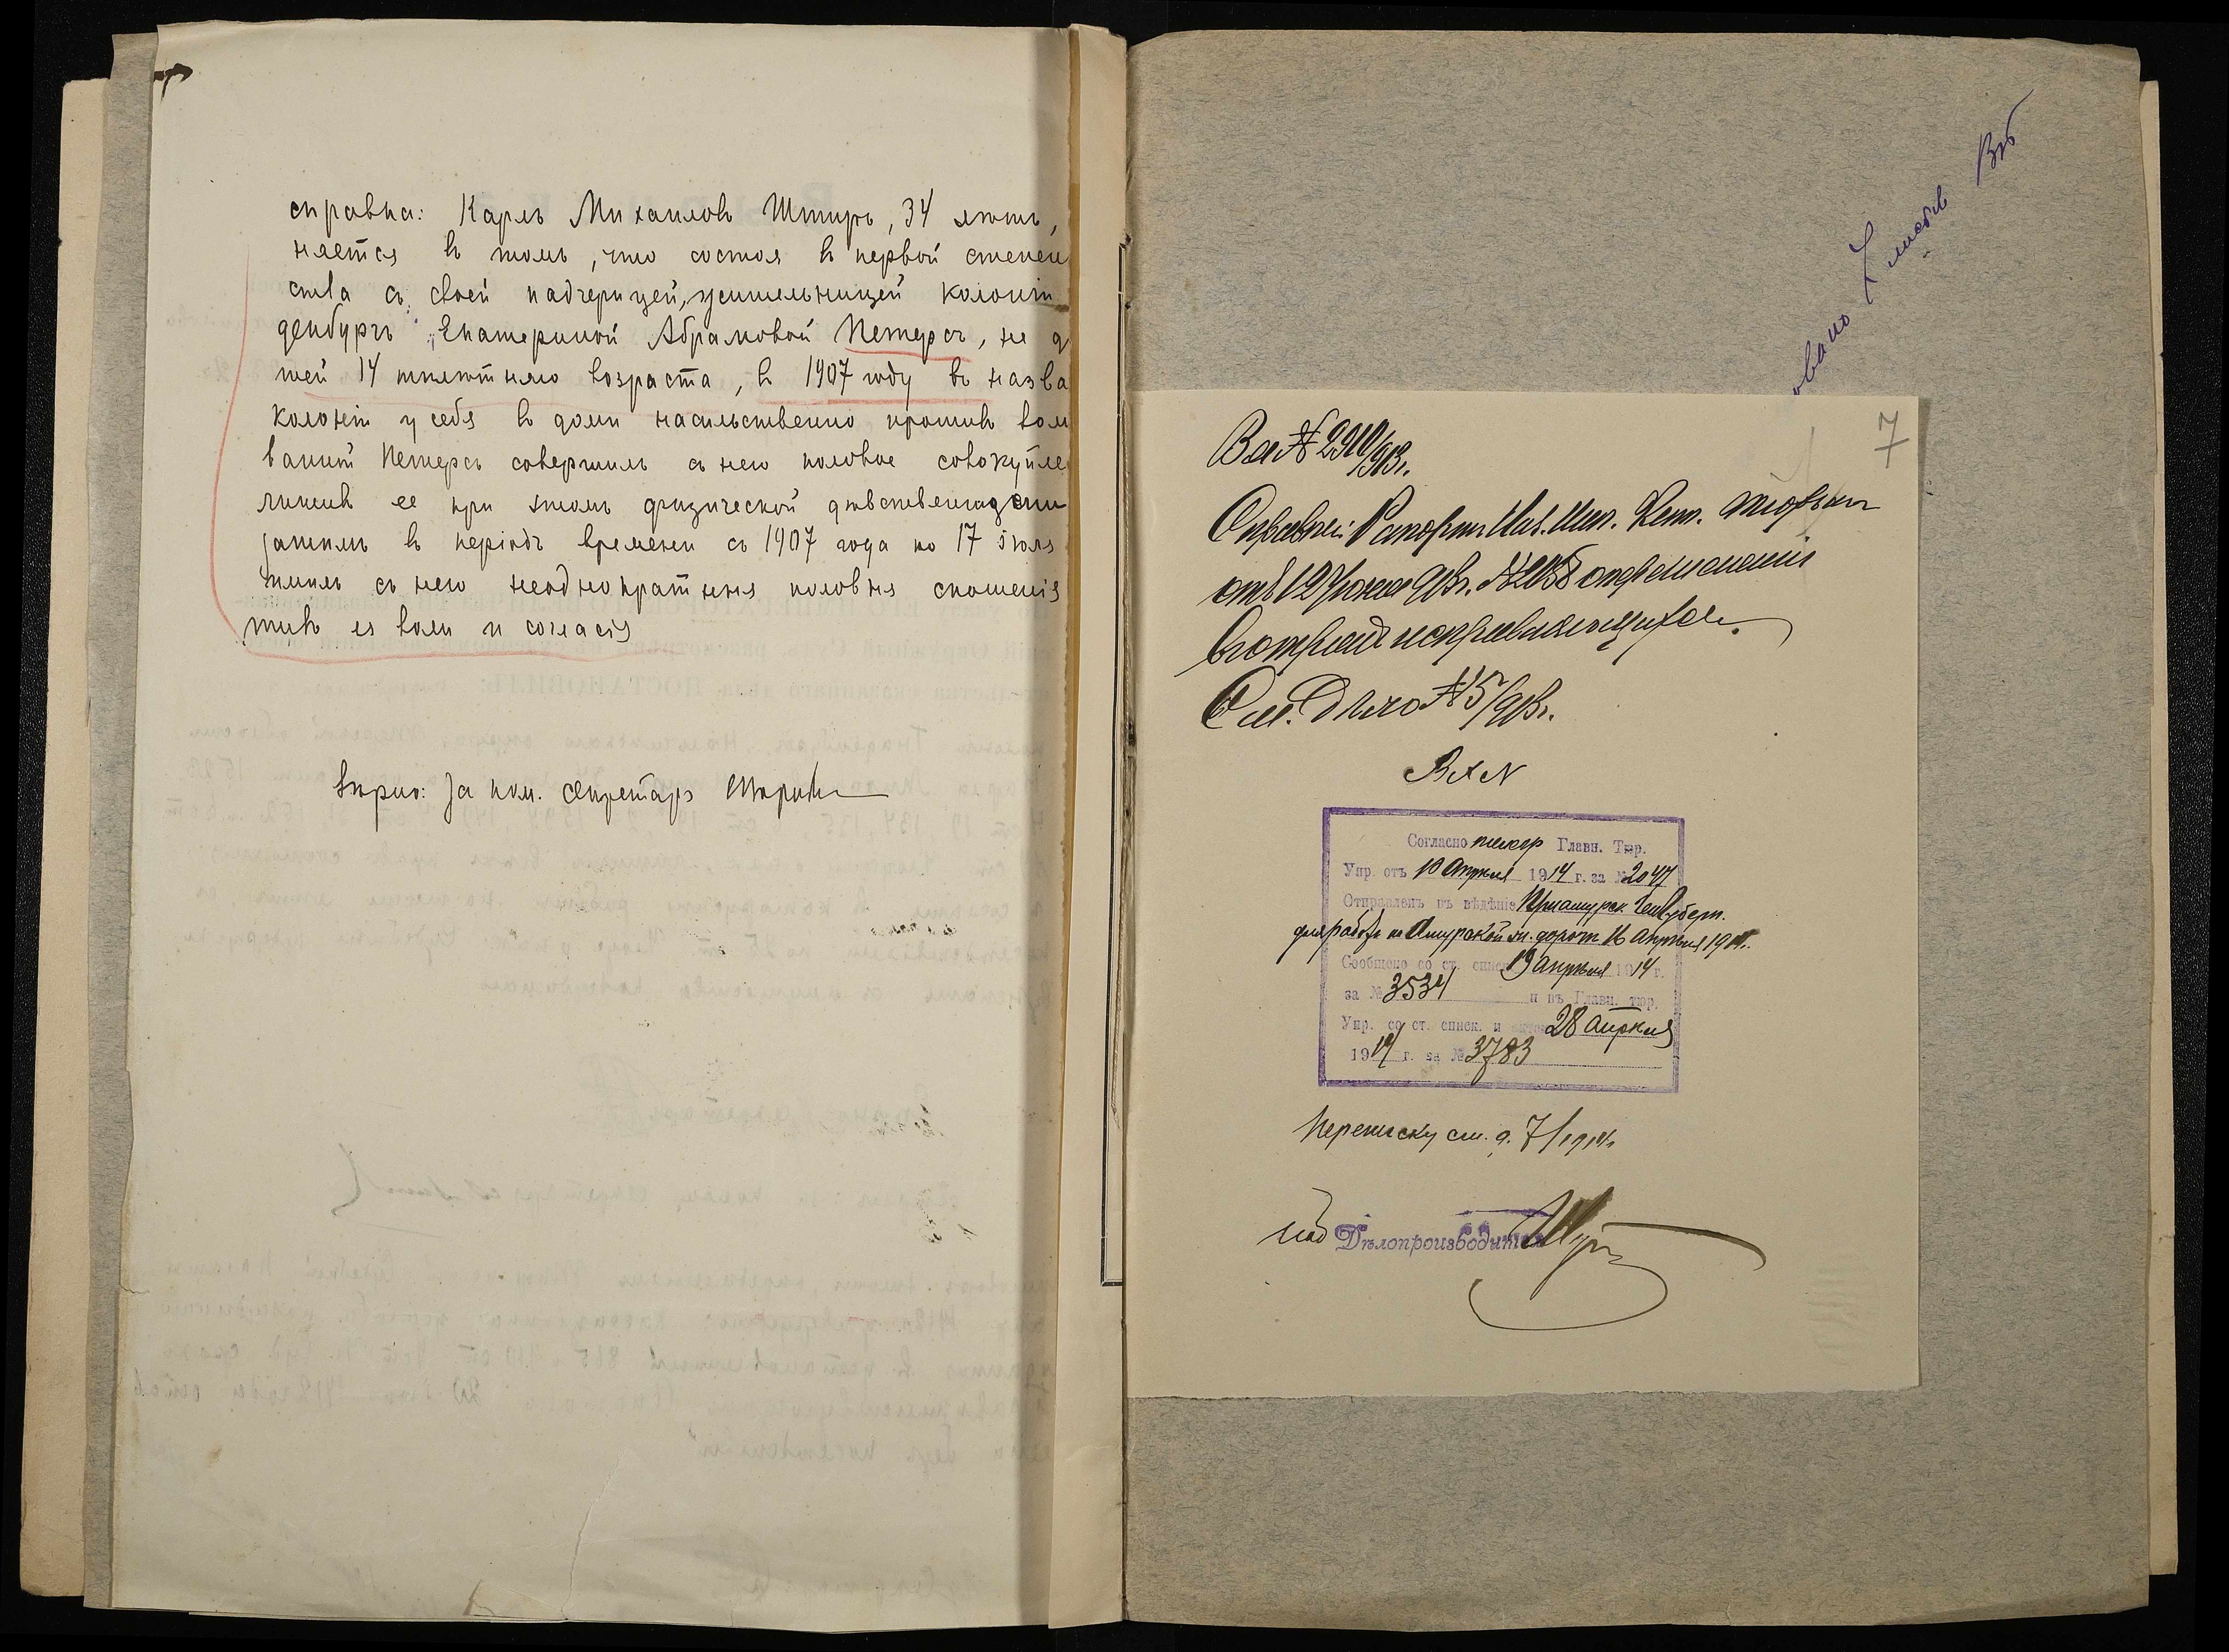 справка: Карлъ Михаиловъ Штиръ, 34 лѣтъ,
няется въ томъ, что состоя въ первой степени
ства съ своей падчерицей, жительницей колоніи
денбургъ Екатериной Абрамовой Петерсъ, не д
шей 14 тилѣтняго возраста, въ 1907 году въ назва
колоніи у себя въ доми насильственно противъ вол
ваніи Петерсъ совершилъ съ нею половое совокупле
лишивъ ее при этомъ физической дѣвственности
затимъ въ періодъ времени съ 1907 года по 17 іюля
тилъ съ нею неоднократныя половыя сношенія
тивъ ея воли и согласія
Вѣрно: За пом. секретаря
7
Вх № 2910/913 г.
Справка: Рапортъ Нач. Ник. Кат. тюрьмы
отъ 12 Іюня 913 г. № 2058 о перечисленіи
въ отрядъ исправляющихся.
См. Дѣло № 5/913 г.
Вх N
Согласно Главн. Тюр.
Упр. отъ 10 Апрѣля 1914 г. за № 2047
Отправленъ въ вѣдѣніе Приамурск. Ген Губерн.
для работъ на Амурской ж. дорогѣ 16 Апрѣля 1914 г.
Сообщено со ст. списк 19 Апрѣля 1914 г.
за № 3534 и въ Главн. тюр.
Упр. со ст. списк. и 28 Апрѣля
1914 г. за № 3783
Переписку см. д. 7/1914 г.
Дѣлопроизводитель